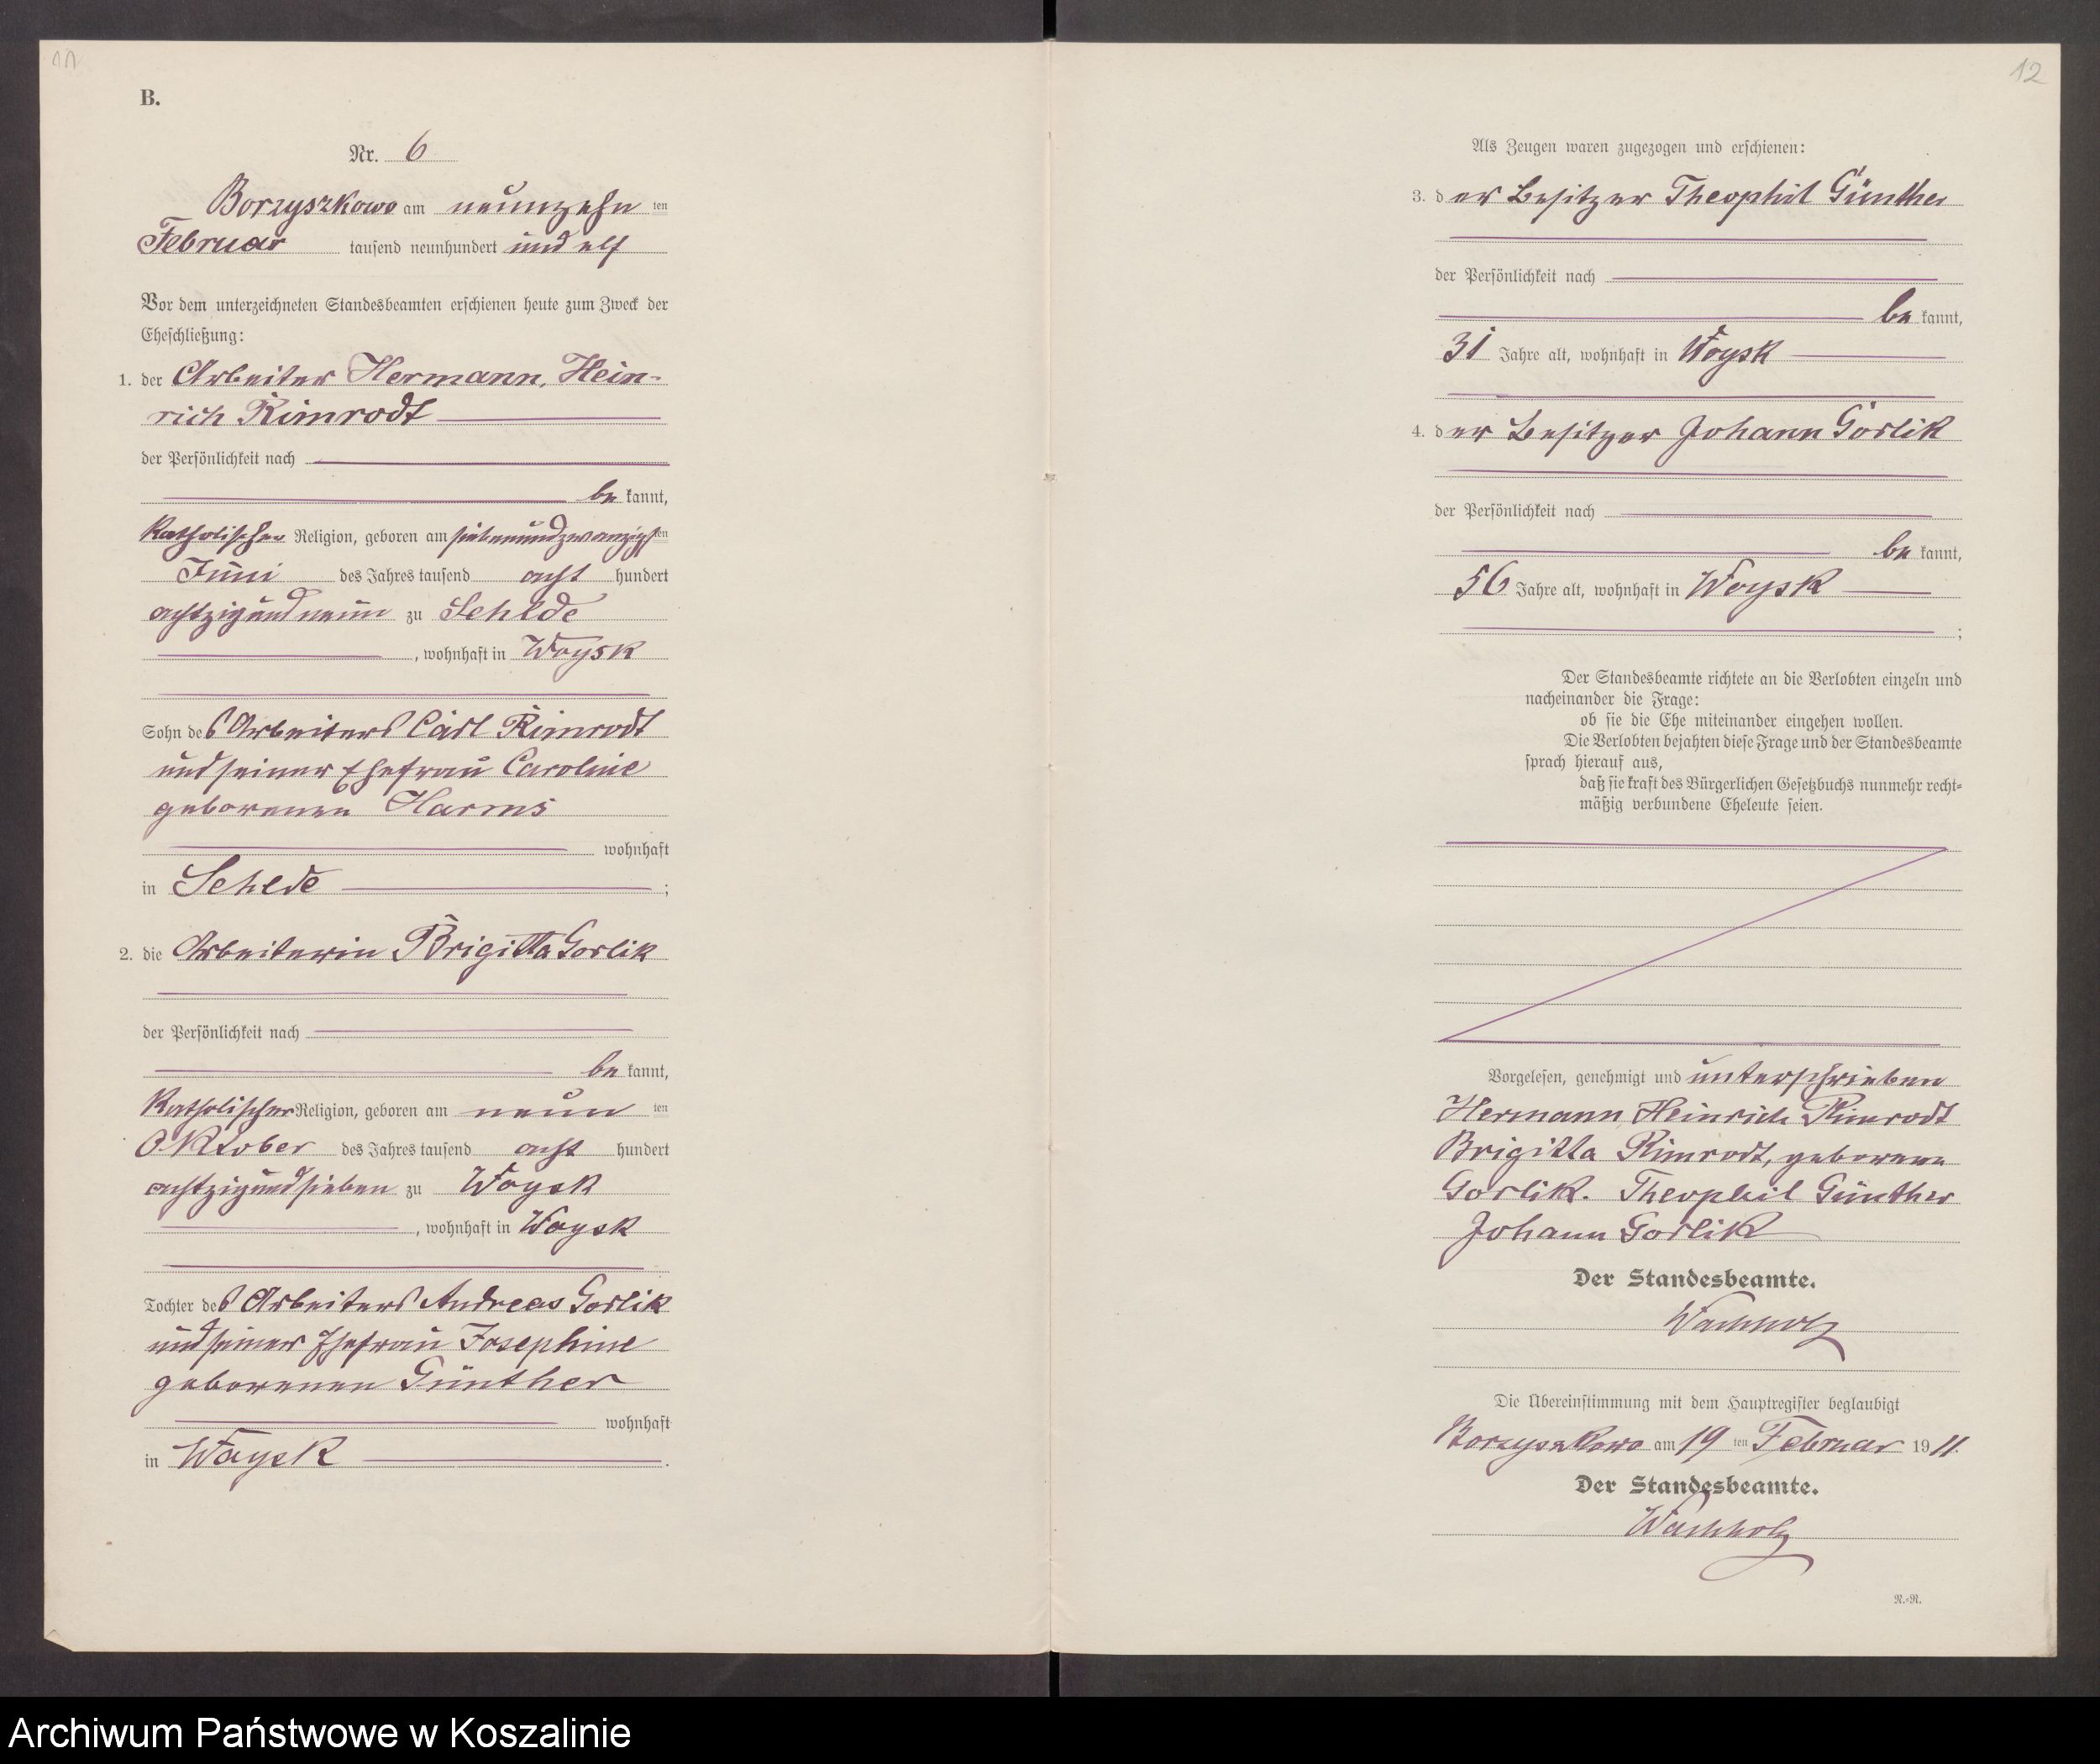 11
B.
Nr. 6
Borzyszkowo am neunzehn ten
Februar tausend neunhundert und elf
Vor dem unterzeichneten Standesbeamten erschienen heute zum Zweck der
Eheschließung:
1. der Arbeiter Hermann, Hein-
rich Rimrodt
der Persönlichkeit nach
be kannt,
Katholischer Religion, geboren am siebenundzwanzigsten
Juni des Jahres tausend acht hundert
achtzig und neun zu Sehlde
, wohnhaft in Woysk
Sohn des Arbeiters Carl Rimrodt
und seiner Ehefrau Caroline
geborenen Harms
wohnhaft
in Sehlde ;
2. die Arbeiterin Brigitta Gorlik
der Persönlichkeit nach
be kannt,
Katholischer Religion, geboren am neun ten
Oktober des Jahres tausend acht hundert
achtzig und sieben zu Woysk
, wohnhaft in Woysk
Tochter des Arbeiters Andreas Gorlik
und seiner Ehefrau Josephine
geborenen Günther
wohnhaft
in Woysk .
12
Als Zeugen waren zugezogen und erschienen:
3. der Besitzer Theophil Günther
der Persönlichkeit nach
be kannt,
31 Jahre alt, wohnhaft in Woysk
4. der Besitzer Johann Gorlik
der Persönlichkeit nach
be kannt,
56 Jahre alt, wohnhaft in Woysk
;
Der Standesbeamte richtete an die Verlobten einzeln und
nacheinander die Frage:
ob sie die Ehe miteinander eingehen wollen.
Die Verlobten bejahten diese Frage und der Standesbeamte
sprach hierauf aus,
daß sie kraft des Bürgerlichen Gesetzbuchs nunmehr recht-
mäßig verbundene Eheleute seien.
Vorgelesen, genehmigt und unterschrieben
Hermann, Heinrich Rimrodt
Brigitta Rimrodt, geborene
Gorlik. Theophil Günther
Johann Gorlik
Der Standesbeamte.
Wachholz
Die Übereinstimmung mit dem Hauptregister beglaubigt
Borzyszkowo am 19 ten Februar 1911.
Der Standesbeamte.
Wachholz
N.-R.
Archiwum Państwowe w Koszalinie